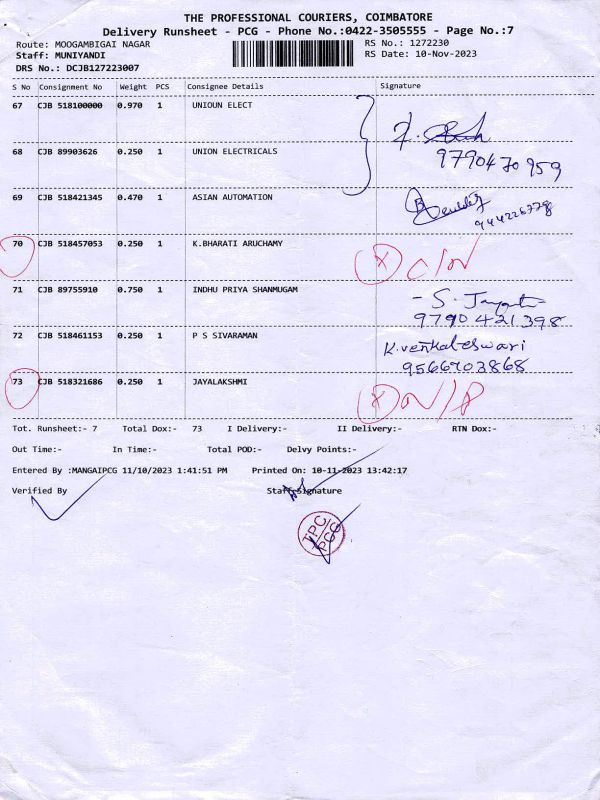 THE PROFESSIONAL COURIERS, COIMBATORE
Delivery Runsheet - PCG - Phone No.:0422-3505555 - Page No.:7
Route: MOOGAMBIGAI NAGAR RS No.: 1272230
Staff: MUNIYANDI RS Date: 10-Nov-2023
DRS No.: DCJB127223007
S No Consignment No Weight PCS Consignee Details Signature
67 CJB 518100000 0.970 1 UNIOUN ELECT
68 CJB 89903626 0.250 1 UNION ELECTRICALS
9790470959
69 CJB 518421345 0.470 1 ASIAN AUTOMATION
70 CJB 518457053 0.250 1 K.BHARATI ARUCHAMY
71 CJB 89755910 0.750 1 INDHU PRIYA SHANMUGAM
9790421398
72 CJB 518461153 0.250 1 P S SIVARAMAN K.venkateswari
9566703868
73 CJB 518321686 0.250 1 JAYALAKSHMI
Tot. Runsheet:- 7 Total Dox:- 73 I Delivery:- II Delivery:- RTN Dox:-
Out Time:- In Time:- Total POD:- Delvy Points:-
Entered By :MANGAIPCG 11/10/2023 1:41:51 PM Printed On: 10-11-2023 13:42:17
Verified By Staff Signature
TPC
PCG